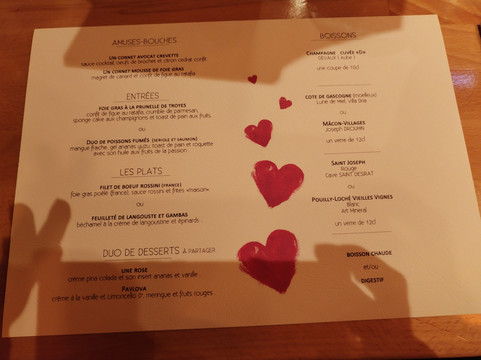 AMUSES-BOUCHES
UN CORNET AVOCAT CREVETTE
sauce cocktail, oeufs de brochet et citron caviar confit
UN CORNET MOUSSE DE FOIE GRAS
magret de canard et confit de figue au ratafia
ENTRÉES
FOIE GRAS À LA PRUNELLE DE TROYES
confit de figue au ratafia, crumble de parmesan,
sponge cake aux champignons et toast de pain aux fruits
ou
DUO DE POISSONS FUMÉS (ESPADON ET SAUMON)
mangue fraîche, gel ananas yuzu, toast de pain et roquette
avec son huile aux fruits de la passion
LES PLATS
FILET DE BOEUF ROSSINI (FRANCE)
foie gras poêlé (france), sauce rossini et frites «maison»
ou
FEUILLETÉ DE LANGOUSTE ET GAMBAS
béchamel à la crème de langoustine et épinards
DUO DE DESSERTS À PARTAGER
UNE ROSE
crème pina colada et son insert ananas et vanille
PAVLOVA
crème à la vanille et Limoncello D², meringue et fruits rouges
BOISSONS
CHAMPAGNE CUVÉE «D»
DEVAUX ( Aube )
une coupe de 10cl
COTE DE GASCOGNE (moelleux)
Lune de Miel, Villa Dria
ou
MÂCON-VILLAGES
Joseph DROUHIN
un verre de 12cl
SAINT JOSEPH
Rouge
Cave SAINT DESIRAT
ou
POUILLY-LOCHÉ VIEILLES VIGNES
Blanc
Art Mineral
un verre de 12cl
BOISSON CHAUDE
et/ou
DIGESTIF